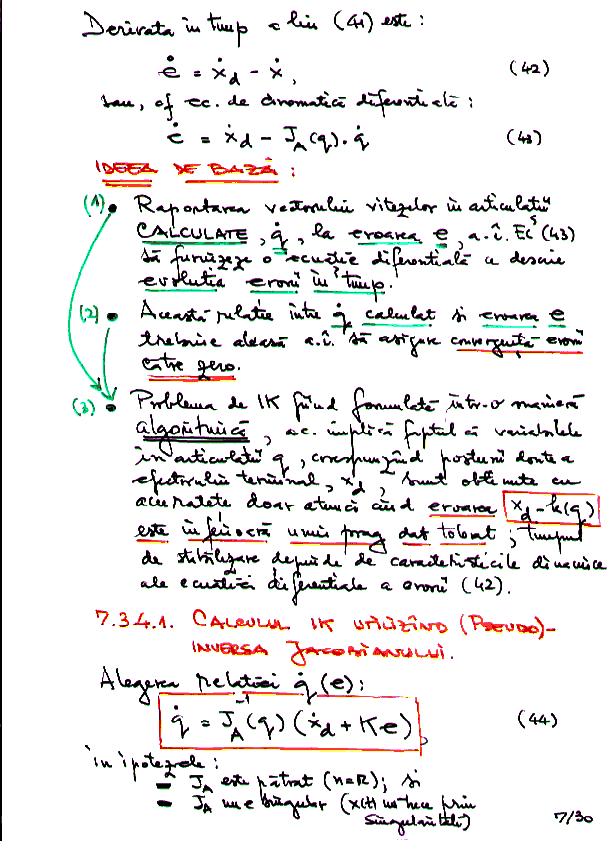 Derivata în timp a lui (41) este:
ė = ẋd − ẋ, (42)
sau, cf ec. de cinematică diferențială:
ė = ẋd − JA(q)·q̇ (43)
IDEEA DE BAZĂ:
(1) • Raportarea vectorului vitezelor în articulații
CALCULATE, q̇, la eroarea e, a.î. Ec (43)
să furnizeze o ecuație diferențială ce descrie
evoluția erorii în timp.
(2) • Această relație între q̇ calculat și eroarea e
trebuie aleasă a.î. să asigure convergența erorii
către zero.
(3) • Problema de IK fiind formulată într-o manieră
algoritmică, ac. implică faptul că variabilele
în articulații q, corespunzînd posturii dorite a
efectorului terminal, xd, sunt obținute cu
acuratețe doar atunci cînd eroarea xd − k(q)
este inferioară unui prag dat tolerat; timpul
de stabilizare depinde de caracteristicile dinamice
ale ecuației diferențiale a erorii (42).
7.3.4.1. CALCULUL IK UTILIZÎND (PSEUDO)-
INVERSA JACOBIANULUI.
Alegerea relației q̇(e):
q̇ = JA⁻¹(q)(ẋd + Ke), (44)
în ipotezele:
- JA este pătrat (n=R); și
- JA nu e singular (x(t) nu trece prin
singularități)
7/30